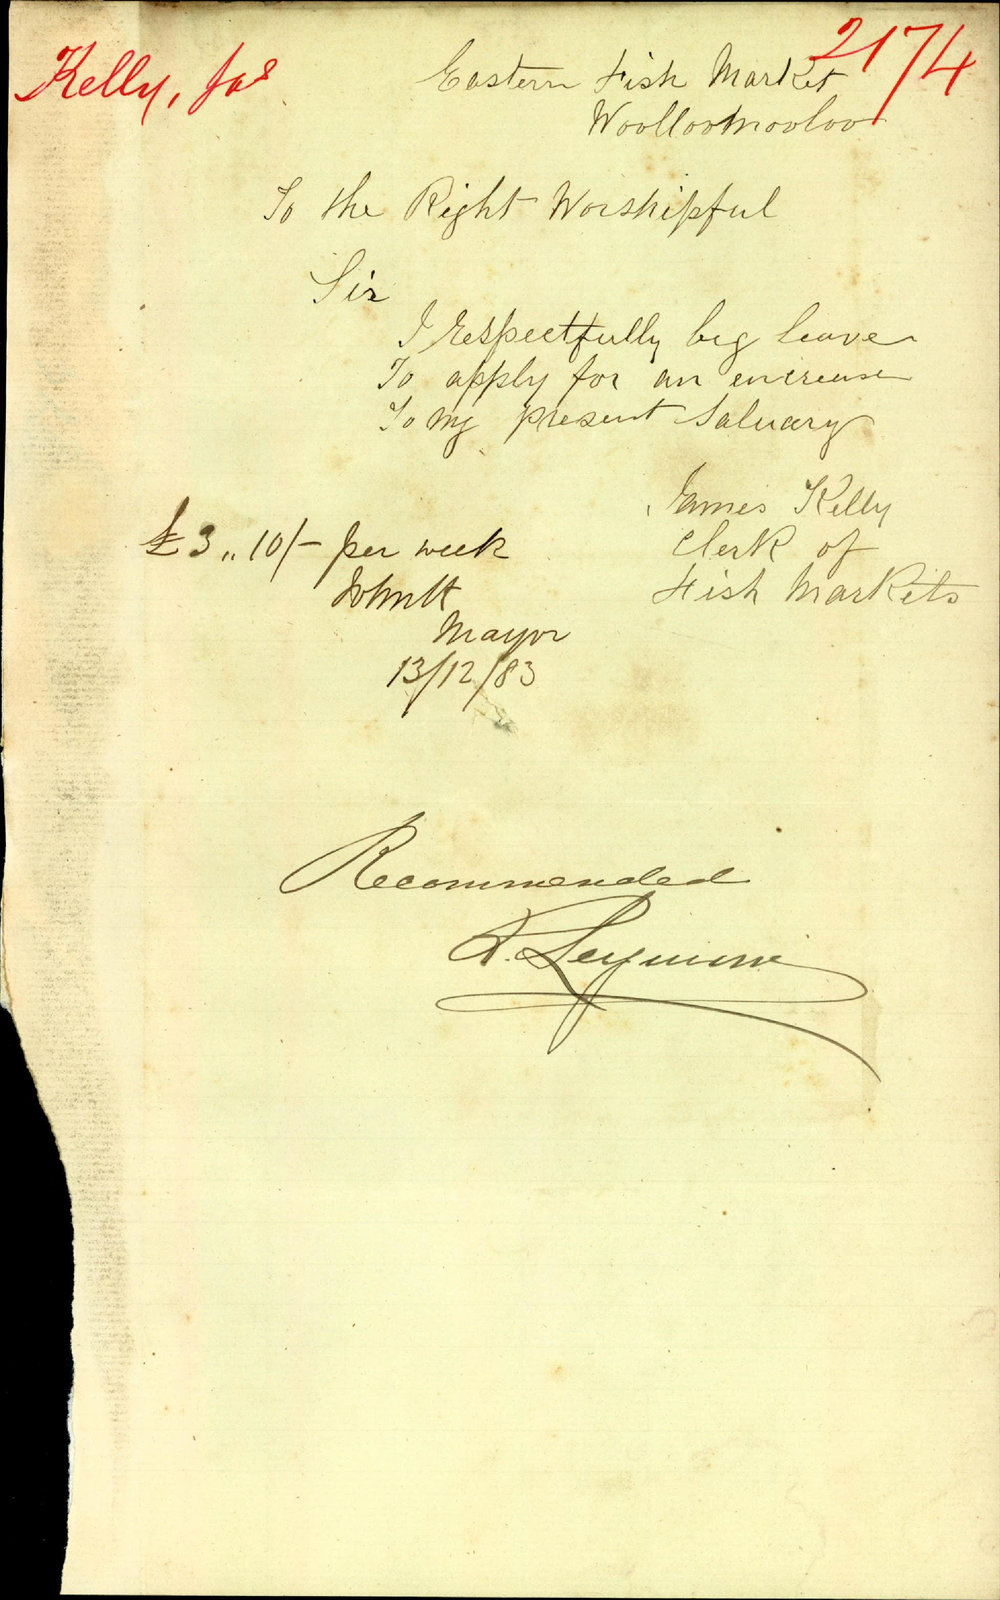 Kelly, Jas
2174
Eastern Fish Market
Woolloomooloo
To the Right Worshipful
Sir
I respectfully beg leave
To apply for an encrease
To my present Saluary
James Kelly
Clerk of
Fish Markets
£3,,10/- per week
Mayor
13/12/83
Recommended
R. Seymour